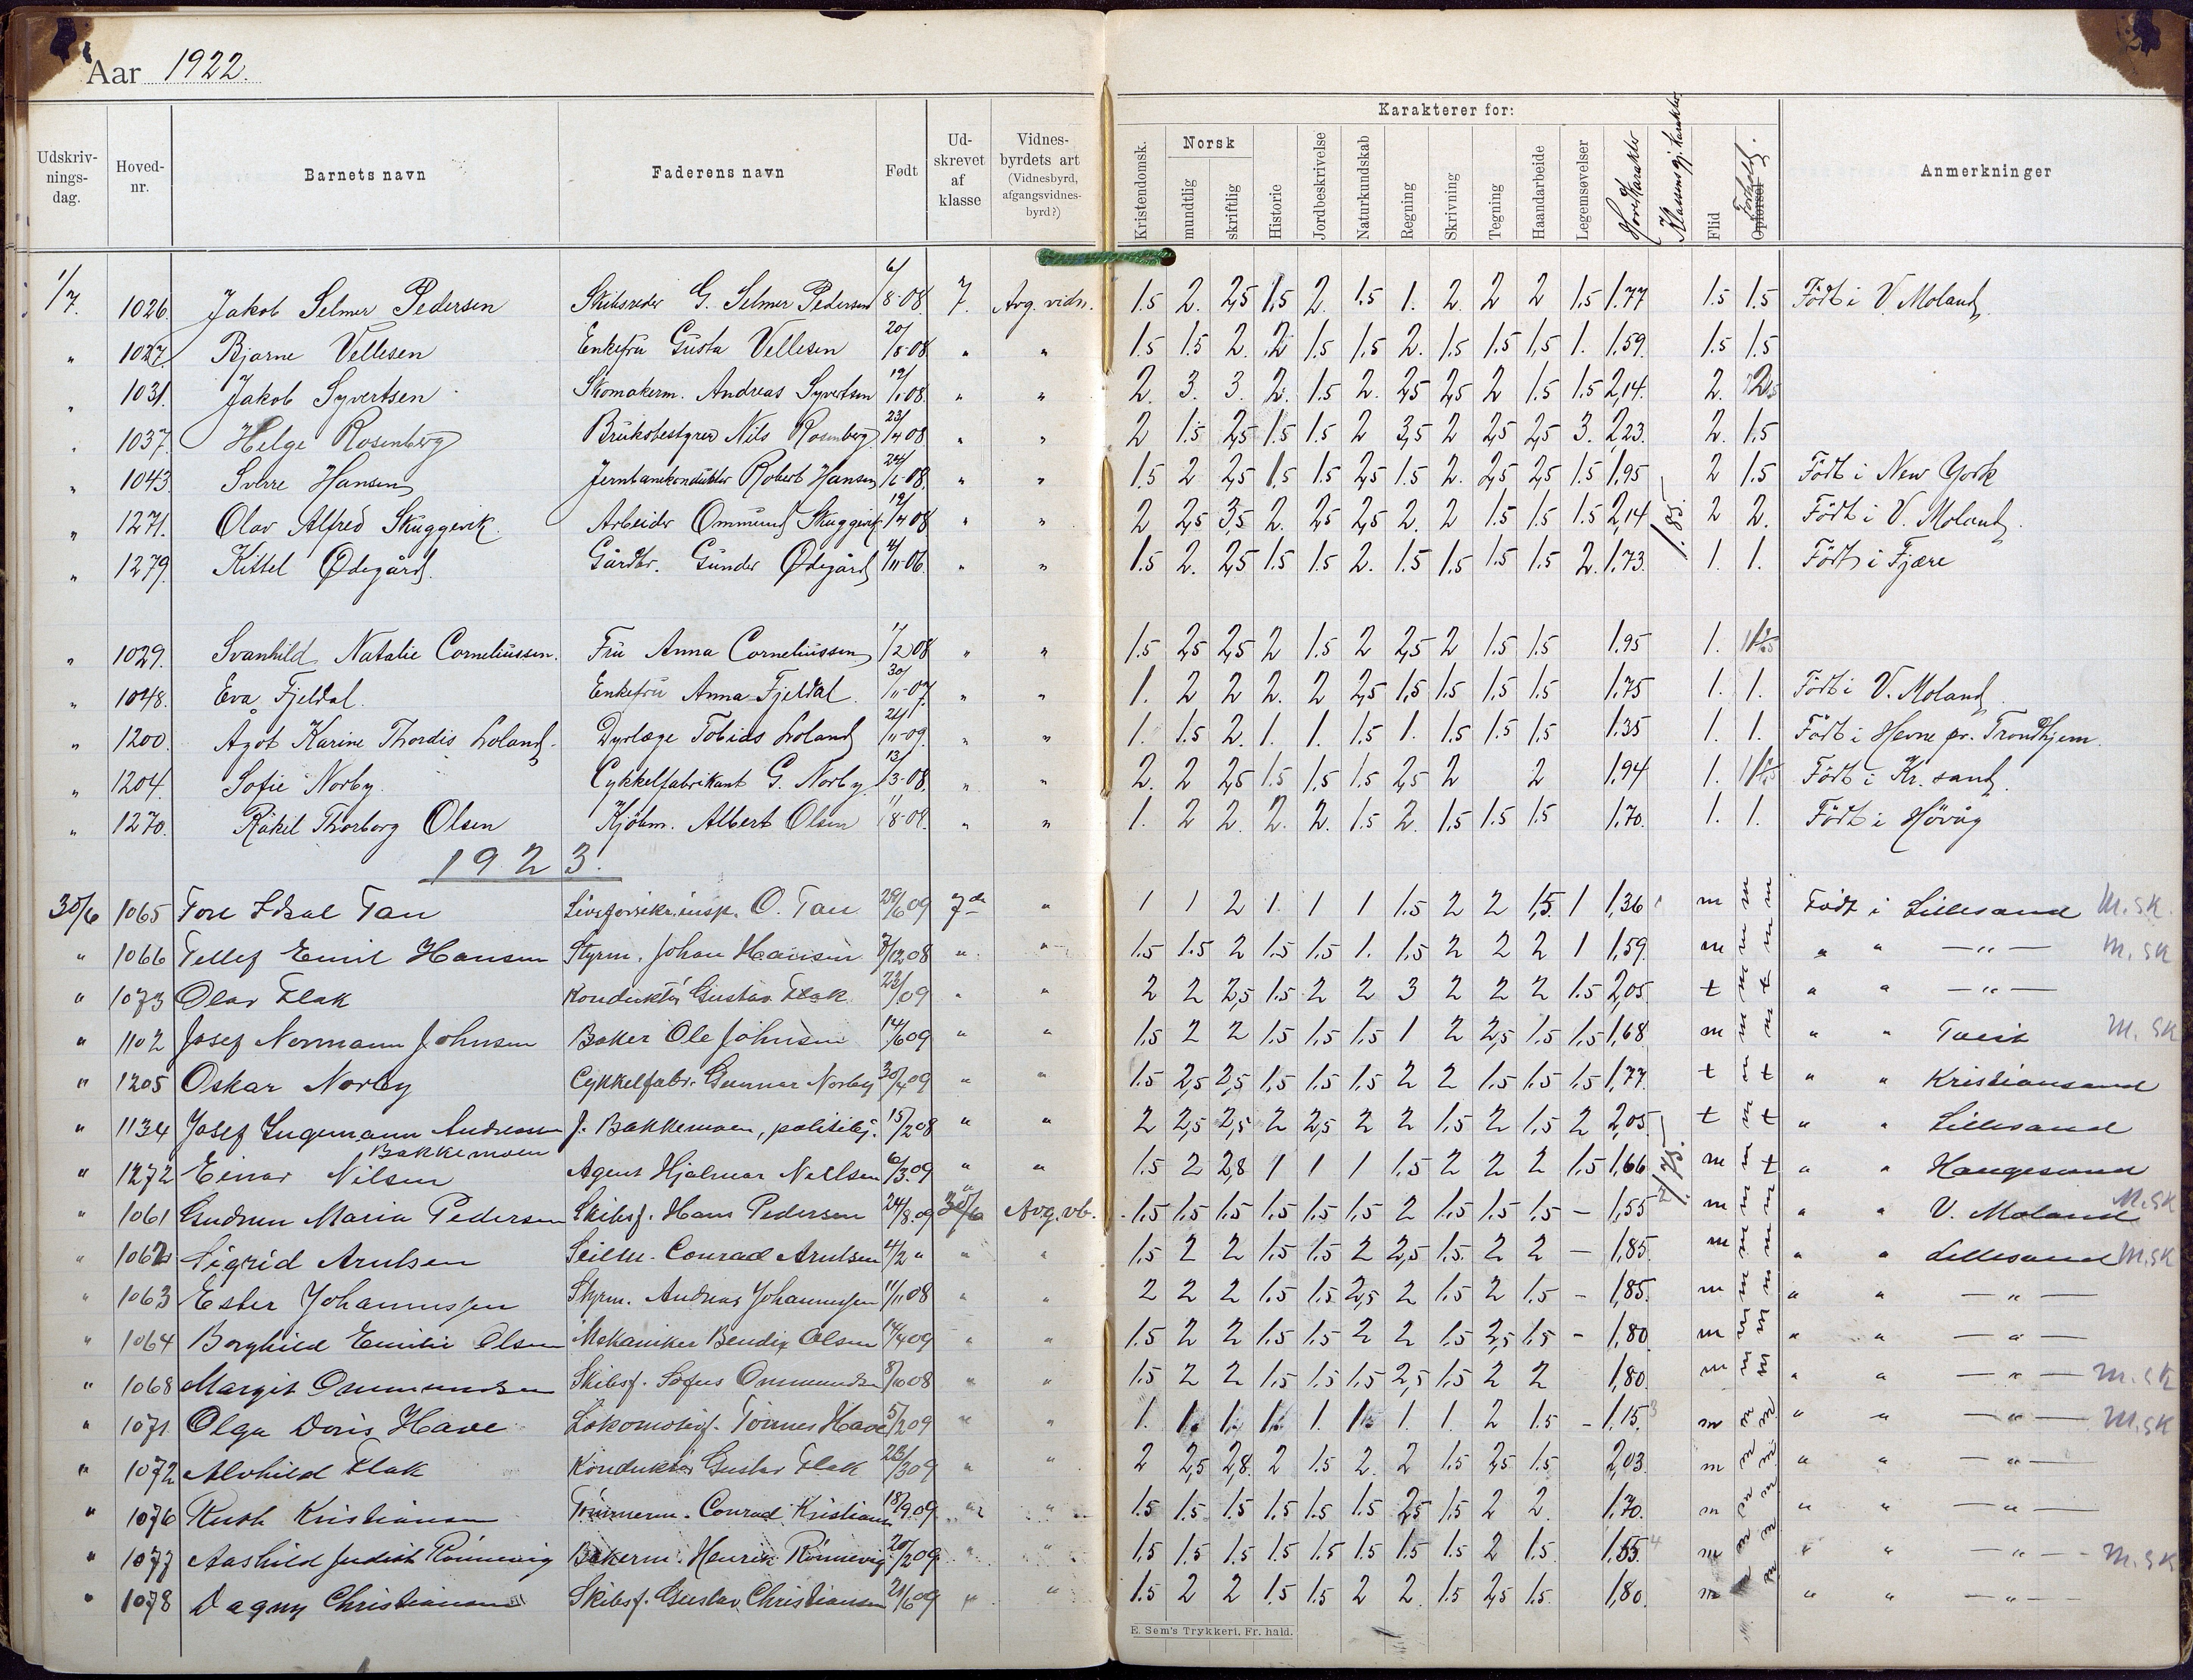 Aar 1922.
Karakterer for:
Udskriv-nings-dag. Hoved-nr. Barnets navn Faderens navn Født Ud-skrevet af klasse Vidnes-byrdets art (Vidnesbyrd, afgangsvidnes-byrd?) Kristendomsk. Norsk mundtlig skriftlig Historie Jordbeskrivelse Naturkundskab Regning Skrivning Tegning Haandarbeide Legemsøvelser Hovedkarakter Klassens gj. karakter Flid Opførsel Forhold. Anmerkninger
1/7. 1026. Jakob Selmer Pedersen Skibsreder G. Selmer Pedersen 6/8-08 7. Avg. vidn. 1.5 2. 2,5 1.5 2. 1.5 1. 2. 2 2 1.5 1.77 1.5 1.5 Født i V. Moland
" 1027. Bjarne Vellesen Enkefru Gusta Vellesen 20/8-08 " " 1.5 1.5 2. 2 1.5 1.5 2. 1.5 1.5 1.5 1. 1.59. 1.5 1.5
" 1031. Jakob Syvertsen Skomakerm. Andreas Syvertsen 12/1.08. " " 2. 3. 3. 2. 1.5 2. 2,5 2,5 2 1.5 1.5 2,14. 2.
" 1037. Helge Rosenberg Bruksbestyrer Nils Rosenberg 23/4 08 " " 2 1.5 2,5 1.5 1.5 2 3,5 2 2,5 2,5 3. 2,23. 2. 1.5
" 1043. Sverre Hansen Jernbanekonduktør Robert Hansen 24/6-08. " " 1.5 2 2,5 1.5 1.5 2,5 1.5 2. 2,5 2,5 1.5 1.95 2 1.5 Født i New York
" 1271. Olav Alfred Skuggevik. Arbeider Ommund Skuggevik 19/4 08 " " 2 2,5 3,5 2. 2,5 2,5 2. 2 1.5 1.5 1.5 2,14 1.85. 2 2. Født i V. Moland.
" 1279. Kittel Ødegård. Gårdbr. Gunder Ødegård 4/11-06. " " 1.5 2. 2,5 1.5 1.5 2. 1.5 1.5 1.5 1.5 2. 1.73. 1. 1. Født i Fjære
" 1029. Svanhild Natalie Corneliussen. Fru Anna Corneliussen 1/2 08 " " 1.5 2,5 2,5 2 1.5 2 2,5 2 1.5 1.5 1.95 1.
" 1048. Eva Fjeldal. Enkefru Anna Fjeldal. 30/11-07. " " 1. 2 2 2. 2 2,5 1.5 1.5 1.5 1.5 1.75 1. 1. Født i V. Moland
" 1200. Ågot Karine Thordis Loland. Dyrlæge Tobias Loland 24/11-09. " " 1. 1.5 2. 1. 1. 1.5 1. 1.5 1.5 1.5 1.35 1. 1. Født i Hevne pr. Trondhjem.
" 1204. Sofie Norby. Cykkelfabrikant G. Norby 13/3-08. " " 2. 2 2,5 1.5 1.5 1.5 2,5 2 2 1.94 1. Født i Kr. sand.
" 1270. Råkil Thorborg Olsen Kjøbm. Albert Olsen " " 1. 2 2. 2. 2. 1.5 2. 1.5 1.5 1.5 1.70. 1. 1. Født i Høvåg
1923.
30/6 1065 Tore Idsal Tau Livsforsikr.insp. O. Tau 28/6 09 7de " 1 1 2 1. 1 1 1.5 2 2 1,5. 1 1,36 m m m Født i Lillesand M.SK.
" 1066 Tellef Emil Hansen Styrm. Johan Hansen 7/12,08 " " 1.5 1.5 2 1.5 1.5 1. 1.5 2 2 2 1 1,59. m m m " " — " — M. SK
" 1073 Olav Flak Konduktør Gustav Flak " " 2 2 2,5 1.5 2 2 3 2 2 2 1.5 2,05. t m t " " — " —
" 1102 Josef Normann Johnsen Baker Ole Johnsen 14/6 09 " " 1.5 2 2 1.5 1.5 1.5 1 2 2,5 1.5 1.5 1,68. m m m " " Tveit M. SK
" 1205 Oskar Norby Cykkelfabr. Gunnar Norby 30/4 09 " " 1.5 2,5 2,5 1.5 1.5 1.5 2 2 1.5 1.5 1.5 1,77. t t " " Kristiansand
" 1134 Josef Ingemann Andreassen J. Bakkemoen, politibj. 15/2 08 " " 2 2,5 2,5 2 2,5 2 2 1.5 2 1.5 2 2,05. t m t " " Lillesand
Bakkemoen
" 1272 Einar Nilsen Agent Hjalmar Nillsen 6/3.09 " " 1.5 2 2,8 1 1 1 1.5 2 2 2 1.5 1,66 1.75. m m t " " Haugesund
" 1061 Gudrun Maria Pedersen Skibsf. Hans Pedersen 24/8.09 30/6 Avg. vb. 1.5 1.5 1.5 1.5 1.5 1.5 2 1.5 1.5 1.5 — 1,55 m m m " " V. Moland M.SK
" 1062 Sigrid Arntsen Seilm. Conrad Arntsen 4/2 " " " 1.5 2 2 1.5 1.5 2 2,5 1.5 2 2 — 1,85. m m m " " Lillesand M.SK
" 1063 Ester Johannessen Styrm. Andreas Johannessen 11/11 08 " " 2 2 2 1.5 1.5 2,5 2 1.5 2 1.5 - 1,85. m m m " " — " —
" 1064 Borghild Emilie Olsen Mekaniker Bendix Olsen 14/4 09 " " 1.5 2 2 1.5 1.5 2 2 1.5 2,5 1.5 - 1,80 m m m " " — " —
" 1068 Margit Ommundsen Skibsf. Sofus Ommundsen 8/10 08 " " 1.5 2 2 1.5 1.5 1.5 2,5 1.5 2 2 1,80. m m m " " — " — M.SK
" 1071 Olga Doris Have Lokomotivf. Tønnes Have 5/2 09 " " 1. 1. 1. 1. 1. 1. 1. 1. 2 1.5 - 1,15. m m m " " — " — M.SK
" 1072 Alvhild Flak Konduktør Gustav Flak 23/3 09 " " 2 2,5 2,8. 2 1.5 2. 2 1.5 2,5 1.5 2,03. m m m " " — " —
" 1076 Ruth Kristiansen Tømmerm. Conrad Kristians 18/9.09. " " 1.5 1.5 1.5 1.5 1.5 1.5 2,5 1.5 2 2. 1,70. m m m " " — " —
" 1077 Aashild Judith Rønnevig Bakerm. Henrik Rønnevig 20/2 09 " " 1.5 1.5 1.5 1.5 1.5 1.5 1.5 1.5 2 1.5. 1,55. m m m " " — " — M.SK
" 1078 Dagny Christiansen Skibsf. Gustav Christiansen 21/6 09 " " 1.5 2 2 1.5 1.5 2 2. 1.5 2,5 1.5. 1,80. m m m " " — " —
E. Sem's Trykkeri, Fr. hald.